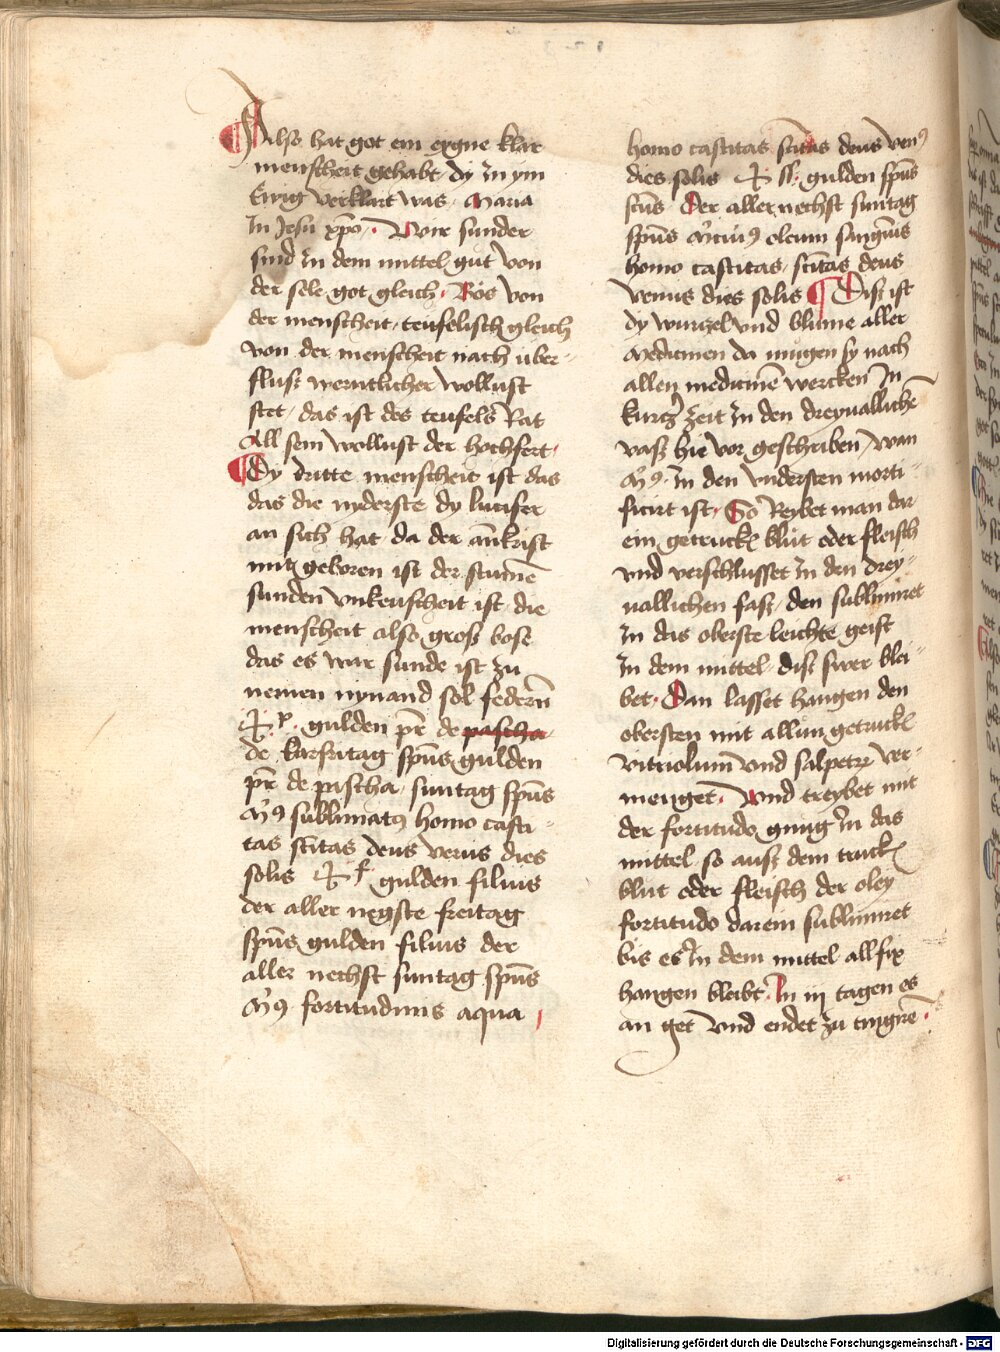 Also hat got ein eygne klar
menscheit gehabt dy in ym
Ewig verklart was Maria
In Jesu xpo. Wir sunder
sind in dem mittel gut von
der sele got gleich. Bös von
der menscheit teufelisch gleich
von der menscheit nach uber-
fluss werntlicher wollust
stet / das ist des teufels Rat
All sein wollust der hochfert.
Dy dritte menscheit ist das
das die nyderste dy lucifer
an sich hat da der ānkrist
mit geboren ist der stumē
sunden unkeuscheit ist die
menscheit also gross bose
das es nur sunde ist zu
nemen nymand sol federn
p. gulden pr̄ de pascha
de karfritag spūs gulden
pr̄ de pascha / suntag spūs
sublimatꝰ homo casti-
tas scītas deus verus dies
solis f gulden filius
der aller negste freitag
spūs gulden filius der
aller nechst suntag spūs
fortitudinis aqua
homo castitas scītas deus venꝰ
dies solis ss. gulden spūs
scūs Der aller nechst suntag
spūs oleum sangwis
homo castitas / scītas deus
venus dies solis Diss ist
dy wurczel und blume aller
Medicinen da mugen sy nach
allen medicinē wercken In
kurcz zeit In den dreyvallichē
vass hie vor geschriben / wan
In den understen morti-
ficirt ist. So Reybet man dar
ein getruckt blut oder fleisch
und verschlusset in den drey-
vallichen fass / den sublimiret
In das oberste leichte geist
In dem mittel diss swer blei-
bet. Dan lasset hangen den
obersten mit allun getruckt
vitriolum und salpetr ver-
menget. Und treybet mit
der fortitudo gnug In das
mittel so auss dem truckē
blut oder fleisch der oley
fortitudo darein sublimiret
bis es In dem mittel all fix
hangen bleibt. In iij tagen es
an get und endet zu tingirē.
Digitalisierung gefördert durch die Deutsche Forschungsgemeinschaft - DFG